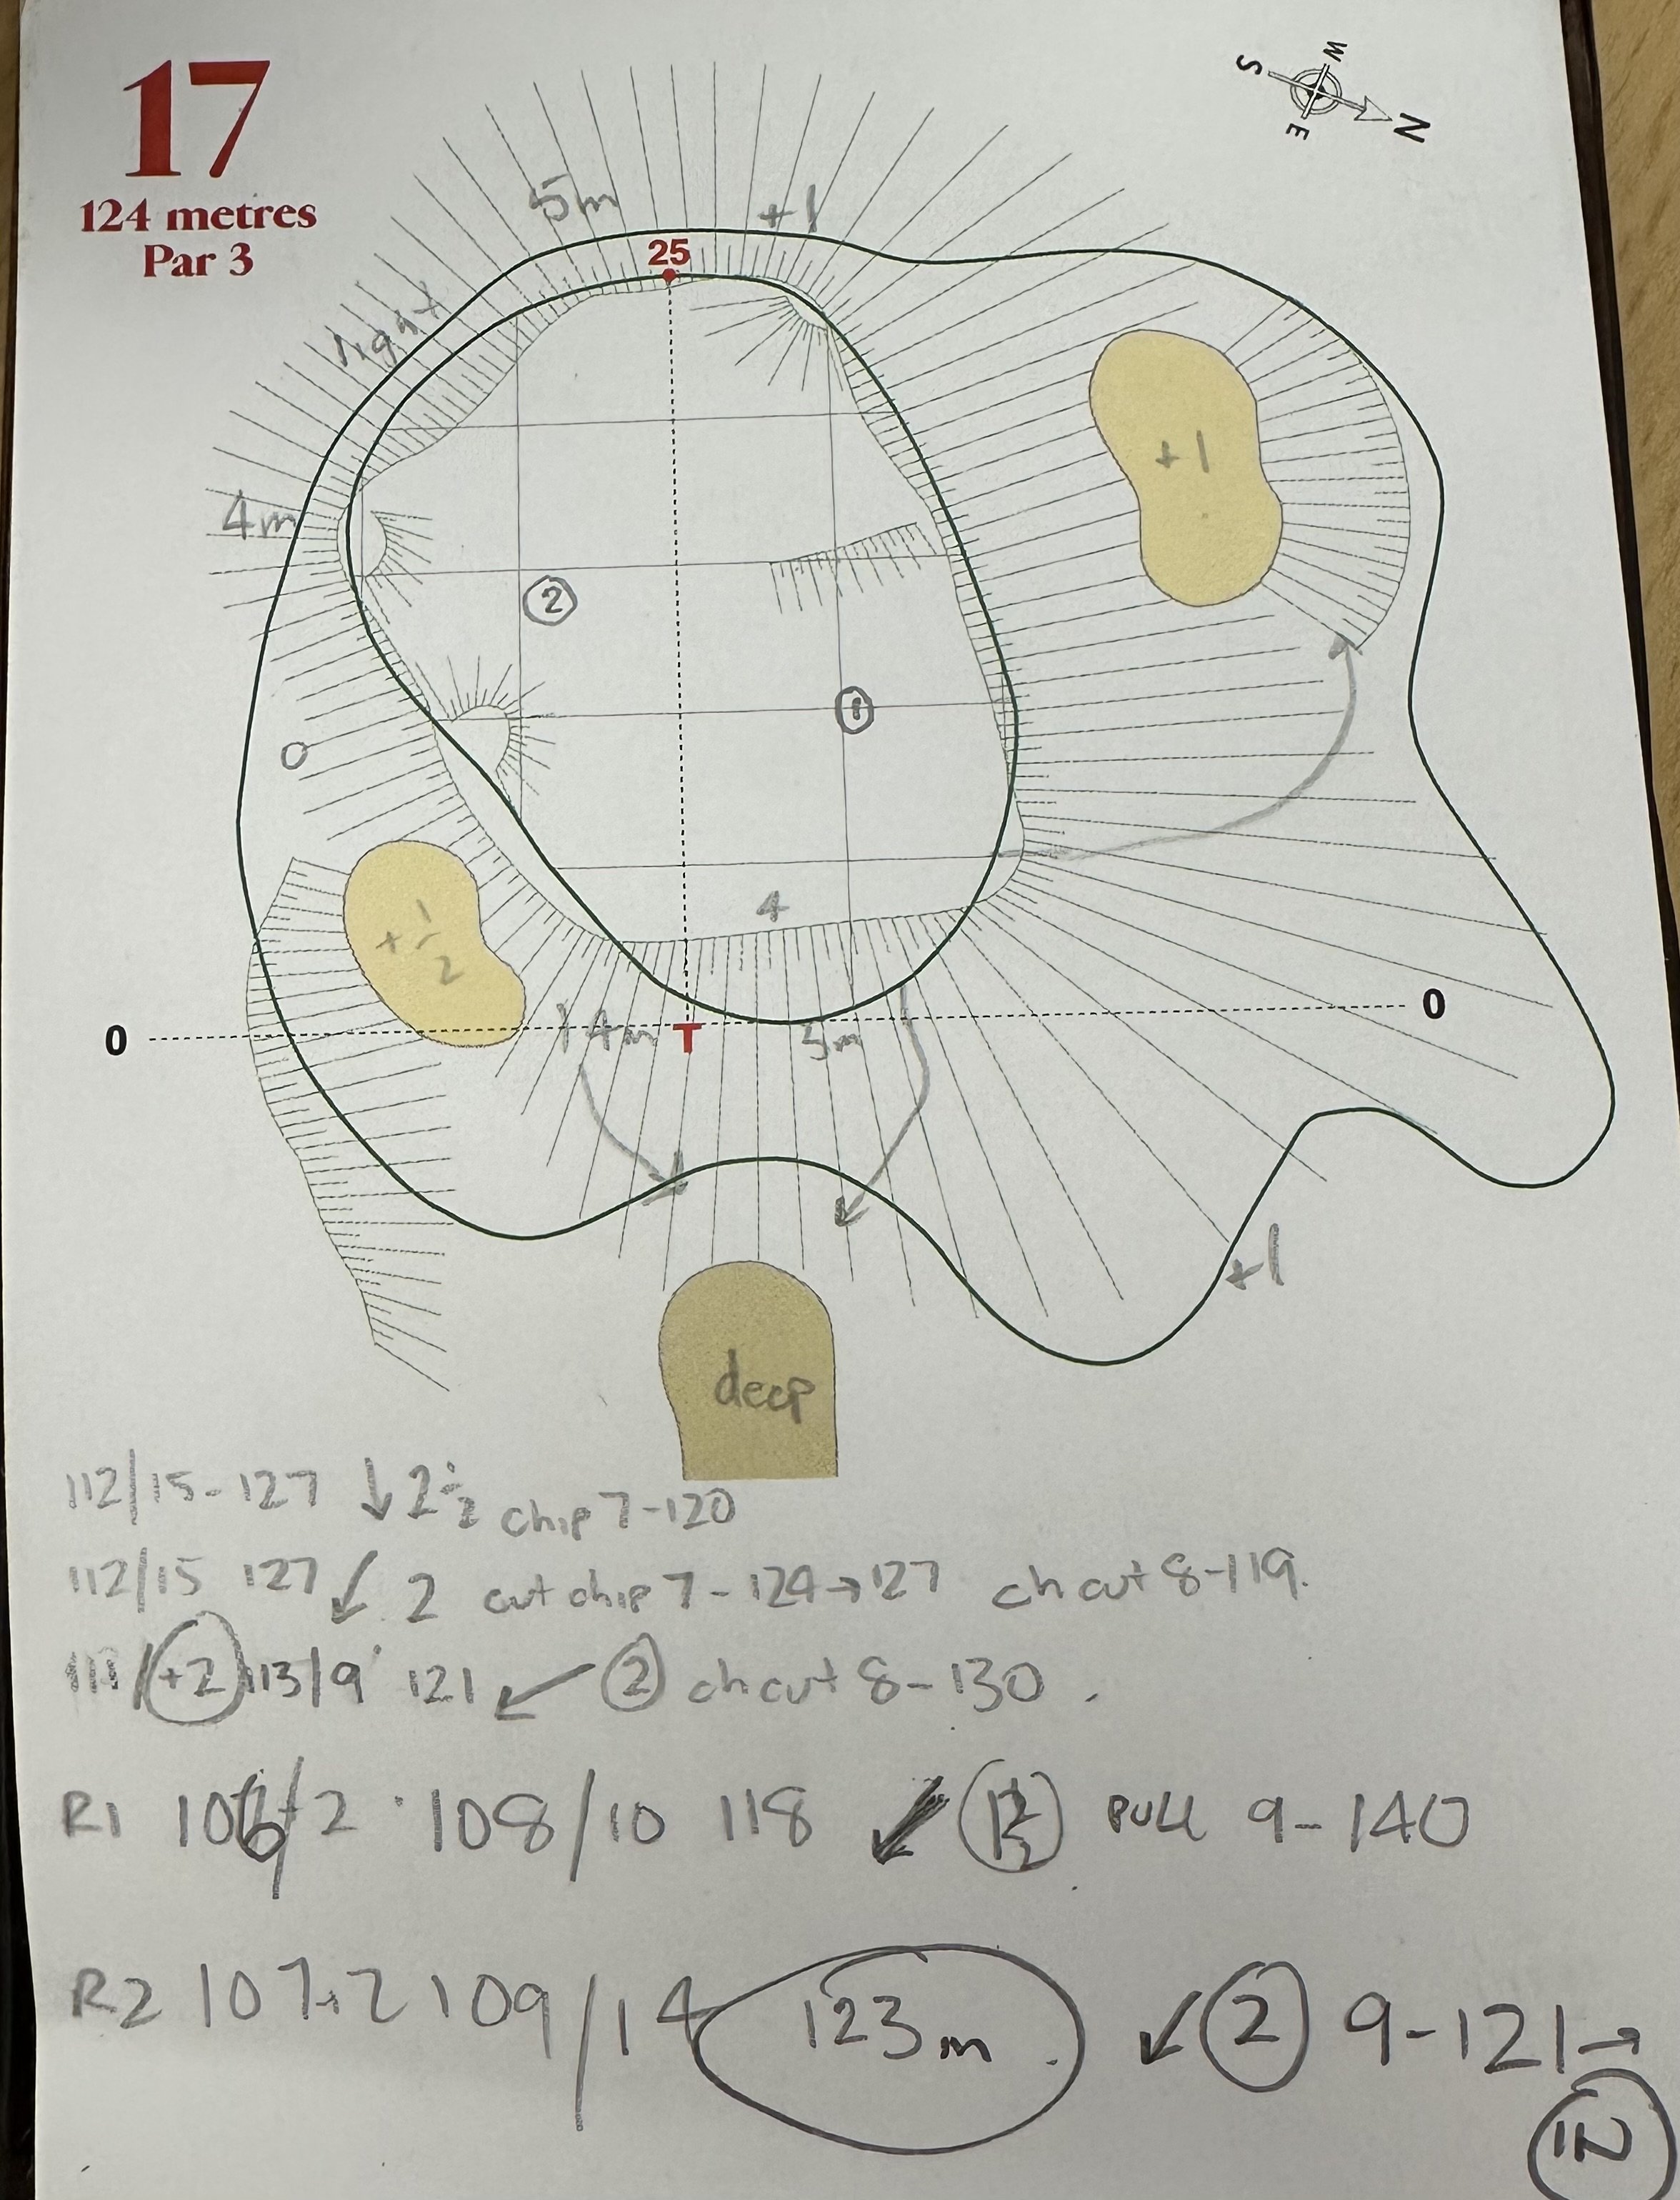 17
124 metres
Par 3
W
S
N
E
5m
+1
25
right
4m
+1
2
1
0
4
+1/2
0
14m
T
5m
0
+1
deep
112/15-127 ↓ 2 1/2 chip 7-120
112/15 127 ↙ 2 cut chip 7-124→127 ch cut 8-119.
111/+2 113/9 121 ↙ 2 ch cut 8-130.
R1 106/+2 108/10 118 ↙ PULL 9-140
R2 107+2 109/14 123m ↙ 2 9-121→
IN